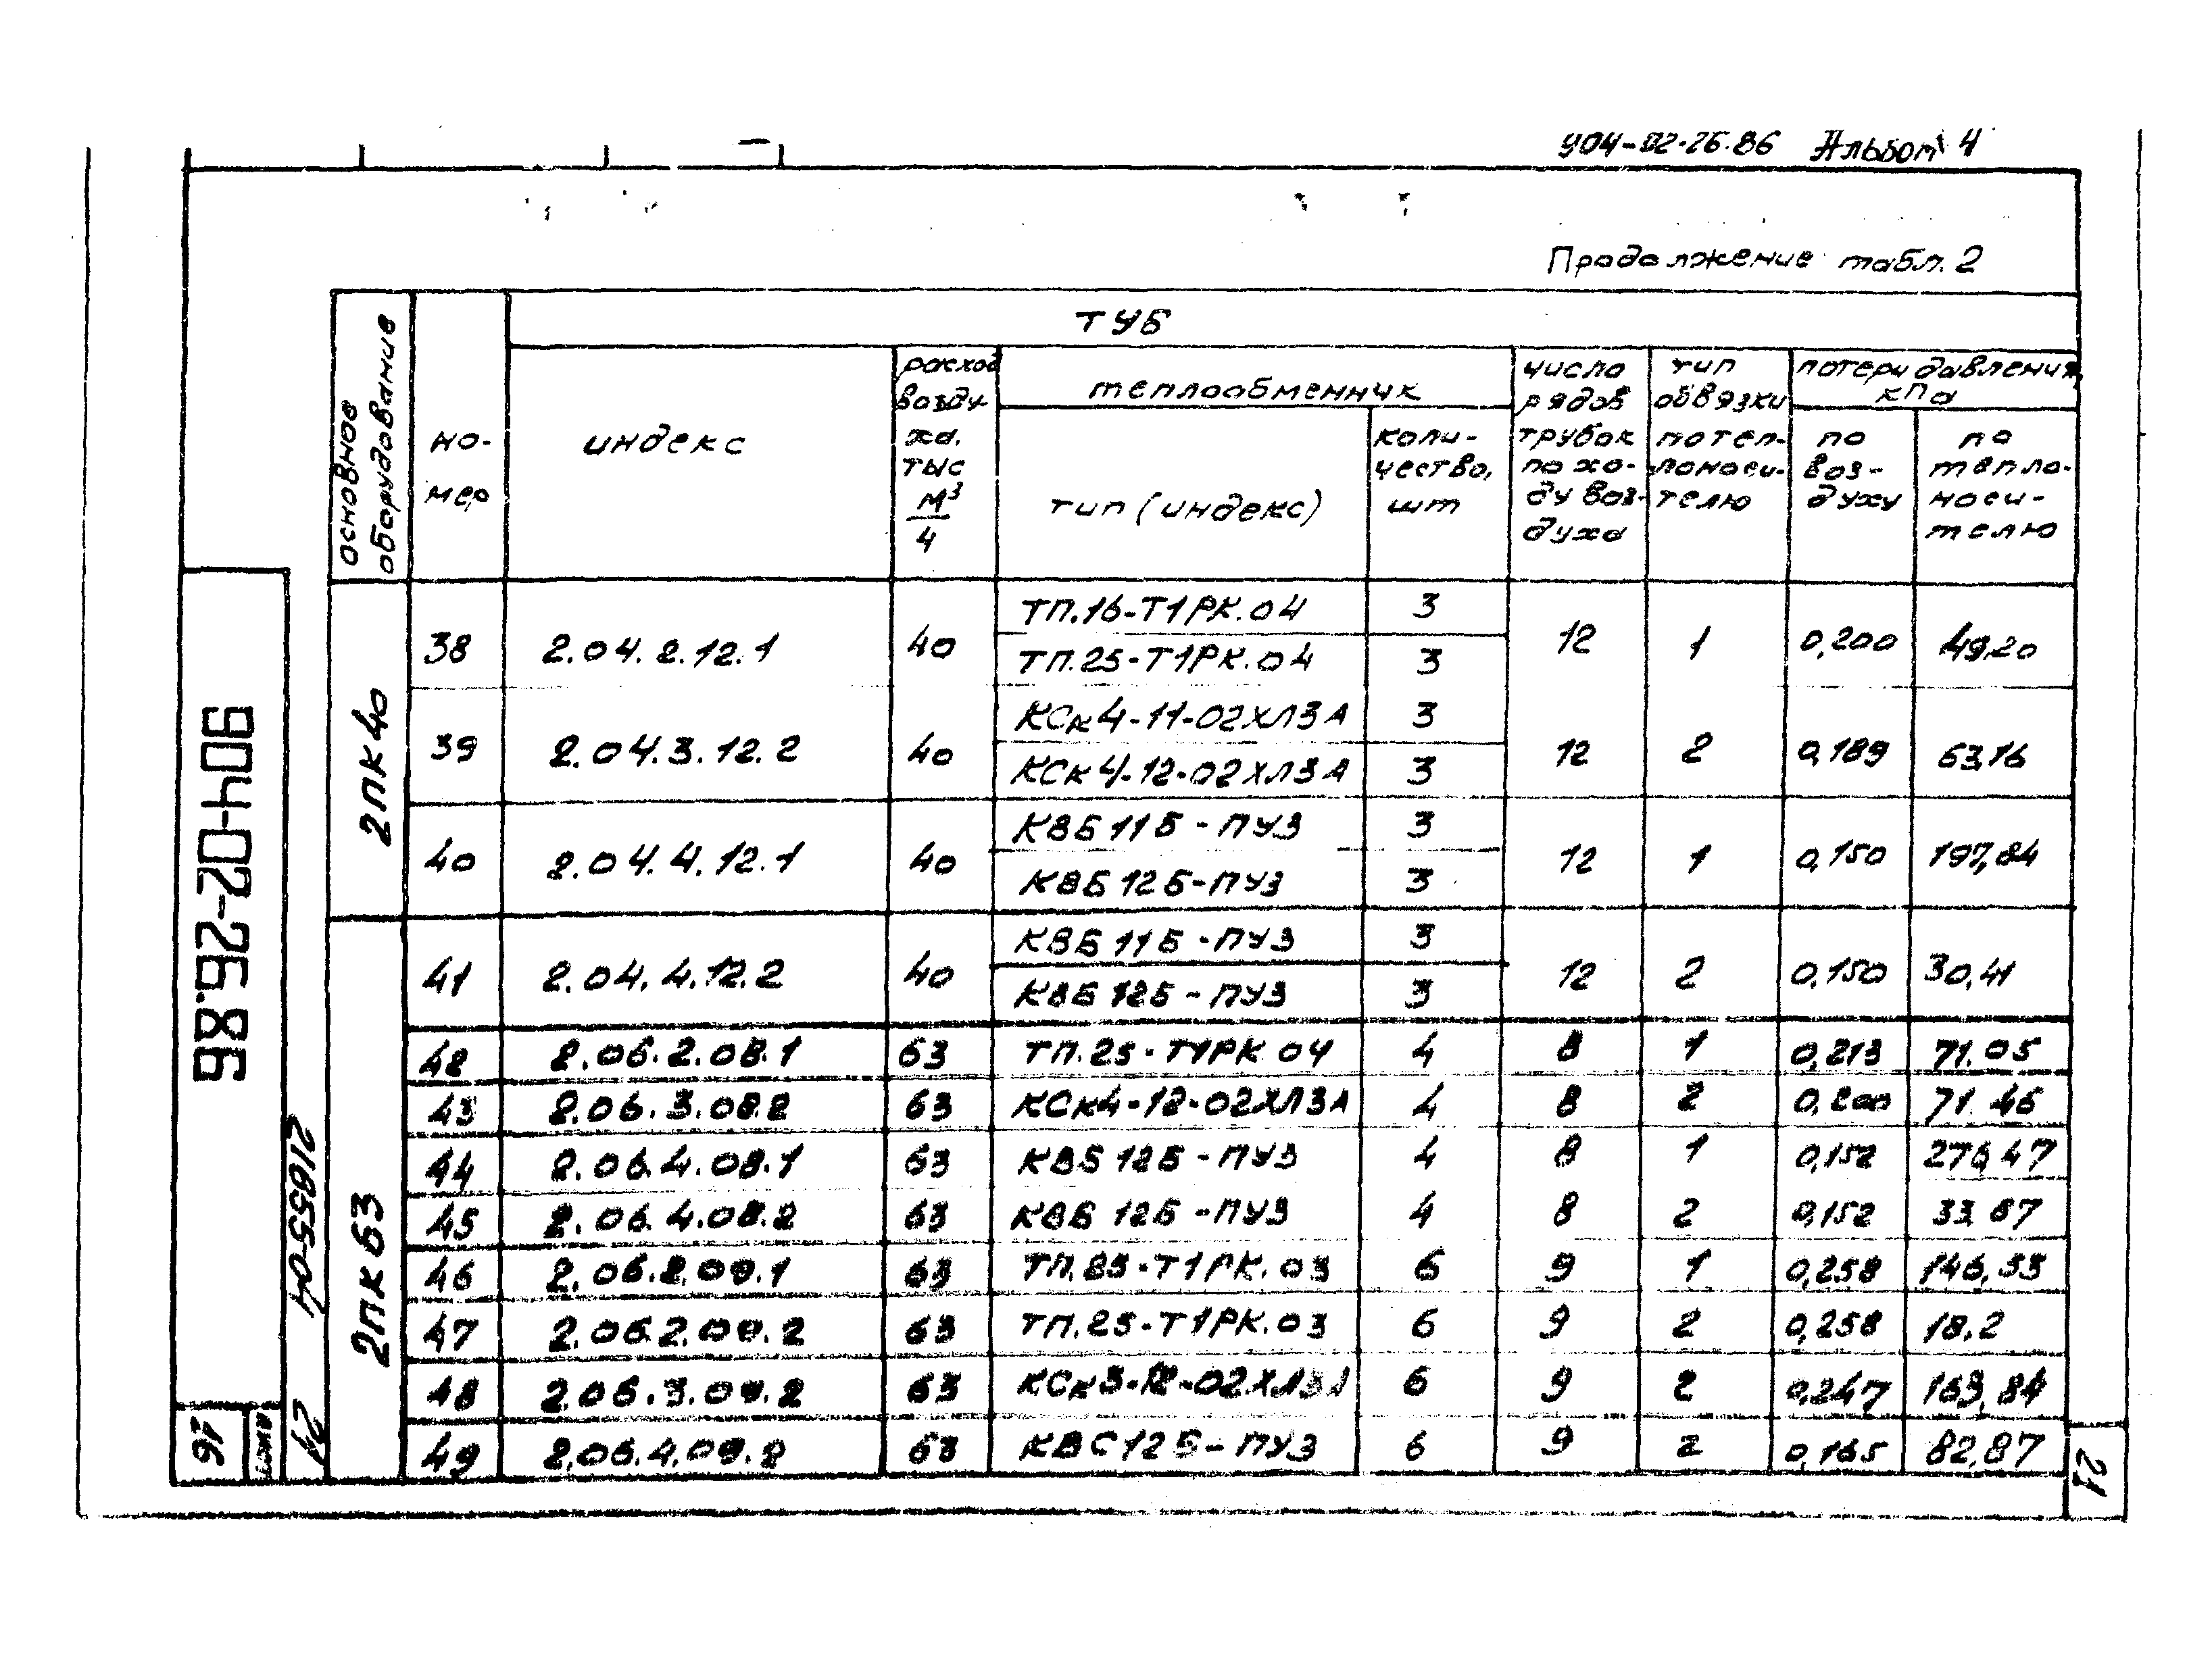 904-02-26.86 Альбом 4
Продолжение табл. 2
основное оборудование
но-
мер
ТУБ
индекс
расход
возду-
ха.
тыс
м³
ч
теплообменник
тип (индекс)
коли-
чество,
шт
число
рядов
трубок
по хо-
ду воз-
духа
тип
обвязки
по теп-
лоноси-
телю
потери давления,
кПа
по
воз-
духу
по
тепло-
носи-
телю
2ПК40
38 2.04.2.12.1 40 ТП.16-Т1РК.04 3 12 1 0,200 49,20
ТП.25-Т1РК.04 3
39 2.04.3.12.2 40 КСк4-11-02ХЛ3А 3 12 2 0,189 63,16
КСк4-12-02ХЛ3А 3
40 2.04.4.12.1 40 КВБ11Б-ПУ3 3 12 1 0,150 197,84
КВБ12Б-ПУ3 3
2ПК63
41 2.04.4.12.2 40 КВБ11Б-ПУ3 3 12 2 0,150 30,41
КВБ12Б-ПУ3 3
42 2.06.2.08.1 63 ТП.25-Т1РК.04 4 8 1 0,213 71.05
43 2.06.3.08.2 63 КСк4-12-02ХЛ3А 4 8 2 0,200 71.46
44 2.06.4.08.1 63 КВБ12Б-ПУ3 4 8 1 0,152 276,47
45 2.06.4.08.2 63 КВБ12Б-ПУ3 4 8 2 0,152 33.67
46 2.06.2.09.1 63 ТП.25-Т1РК.03 6 9 1 0,258 146,33
47 2.06.2.09.2 63 ТП.25-Т1РК.03 6 9 2 0,258 18.2
48 2.06.3.09.2 63 КСк3-12-02ХЛ3А 6 9 2 0,247 163,84
49 2.06.4.09.2 63 КВС12Б-ПУ3 6 9 2 0,165 82,87
904-02-26.86
21855-04
21
16
лист
21